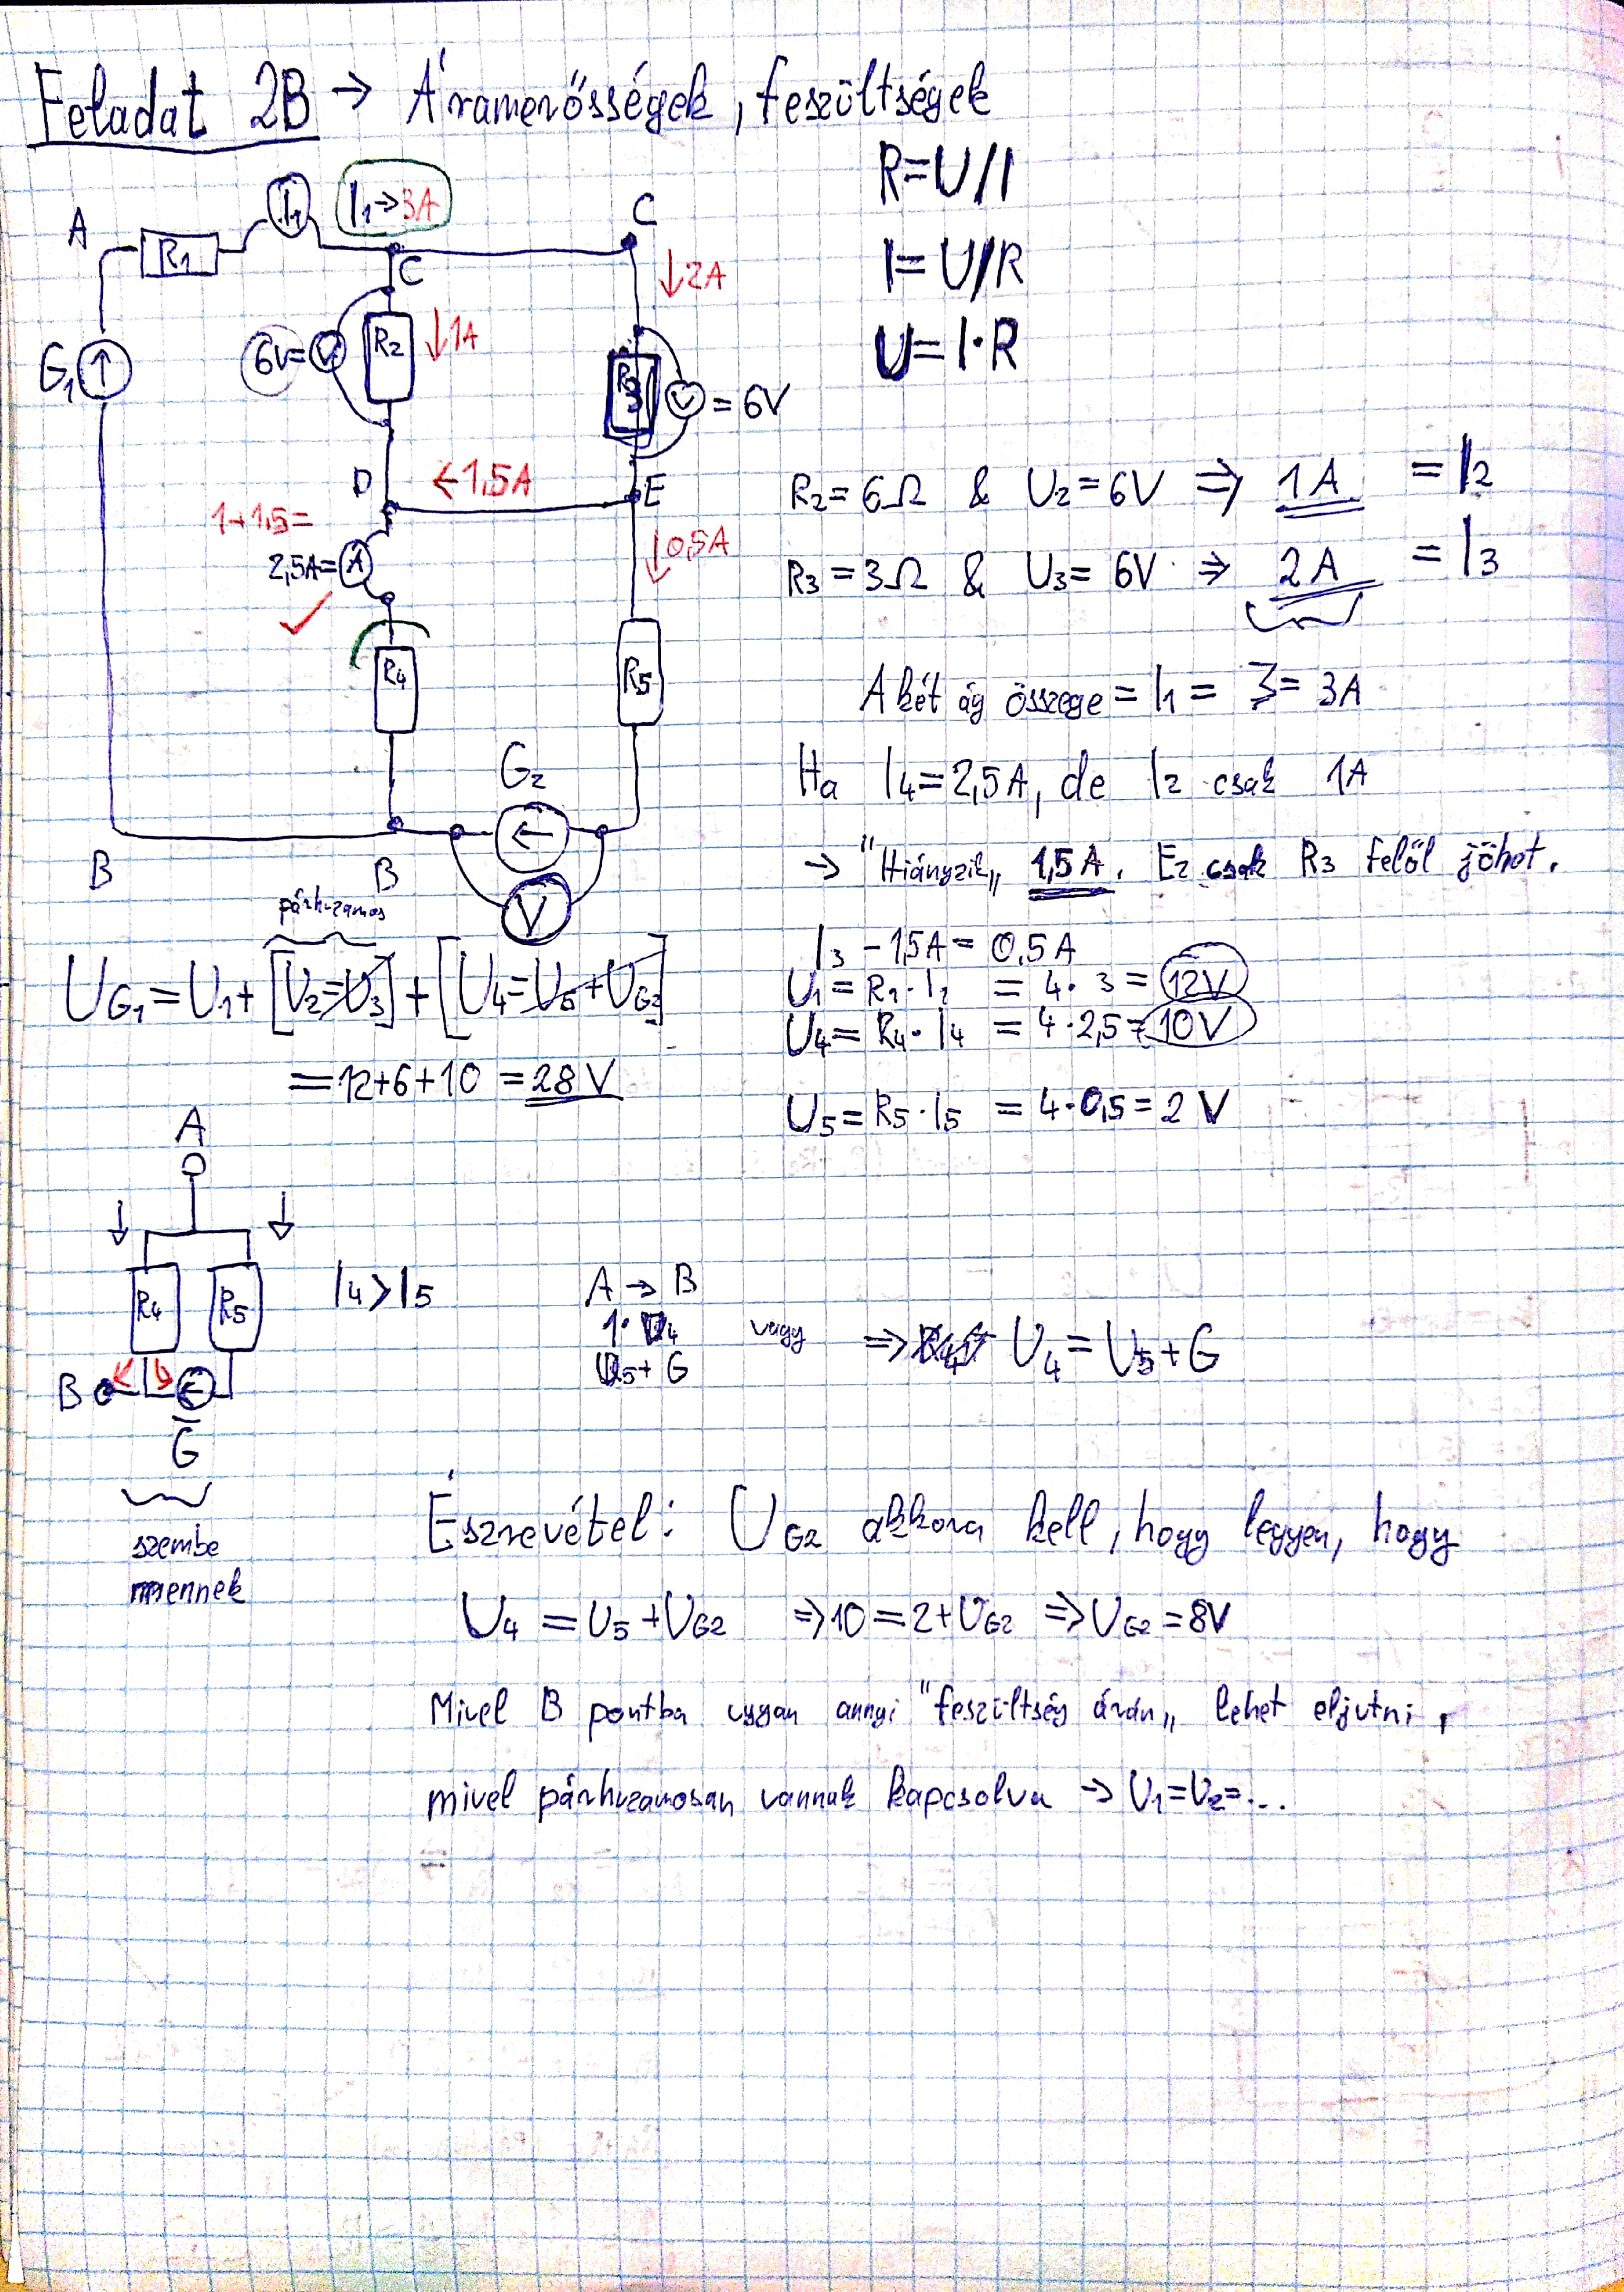 Feladat 2B → Áramerősségek, feszültségek
R=U/I
I=U/R
U=I·R
A
R1
I1
I1→3A
C
C
↓2A
G1
6V=
V
R2
↓1A
R3
V
= 6V
D
←1,5A
E
1+1,5=
2,5A=
A
↓0,5A
R4
R5
G2
B
B
V
R2=6Ω & U2=6V ⇒ 1A = I2
R3=3Ω & U3=6V ⇒ 2A = I3
A két ág összege = I1 = 3= 3A
Ha I4=2,5A, de I2 csak 1A
→ "Hiányzik„ 1,5A. Ez csak R3 felől jöhet.
I3 - 1,5A = 0,5A
U1= R1·I1 = 4·3 = 12V
U4= R4·I4 = 4·2,5= 10V
U5= R5·I5 = 4·0,5= 2V
párhuzamos
UG1=U1+[U2=U3]+[U4=U5+UG2]
=12+6+10 = 28V
A
↓ ↓
R4 R5
I4>I5
B
G
szembe
mennek
A → B
1· U4 vagy
U5+ G
⇒ U4 = U5+G
Észrevétel: UG2 akkora kell, hogy legyen, hogy
U4 = U5+UG2 ⇒10=2+UG2 ⇒UG2=8V
Mivel B pontba ugyan annyi "feszültség árán„ lehet eljutni,
mivel párhuzamosan vannak kapcsolva → U1=U2=...